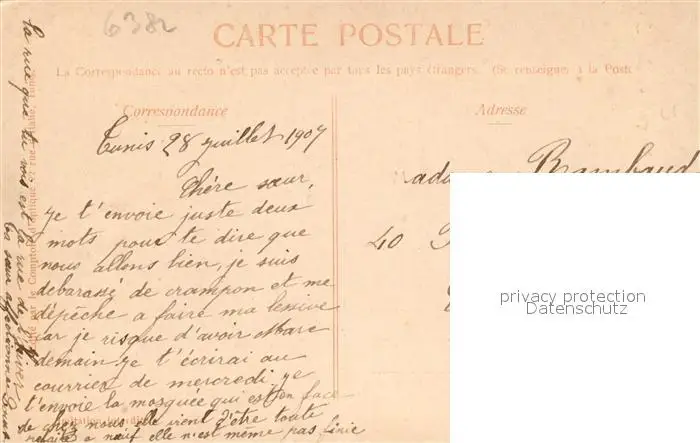 6382
CARTE POSTALE
La Correspondance au recto n'est pas acceptée par tous les pays étrangers. (Se renseigner à la Poste
Correspondance
Adresse
Tunis 28 juillet 1907
Chère sœur,
je t'envoie juste deux
mots pour te dire que
nous allons bien, je suis
debarassé de crampon et me
dépèche a faire ma lessive
car je risque d'avoir Marc
demain je t'écrirai au
courrier de mercredi je
t'envoie la mosquée qui est en face
de chez nous elle vient d'être toute
refaite a neuf elle n'est même pas finie
la rue que tu vois est la rue
ta sœur affectionnée
Rambaud
40
privacy protection
Datenschutz